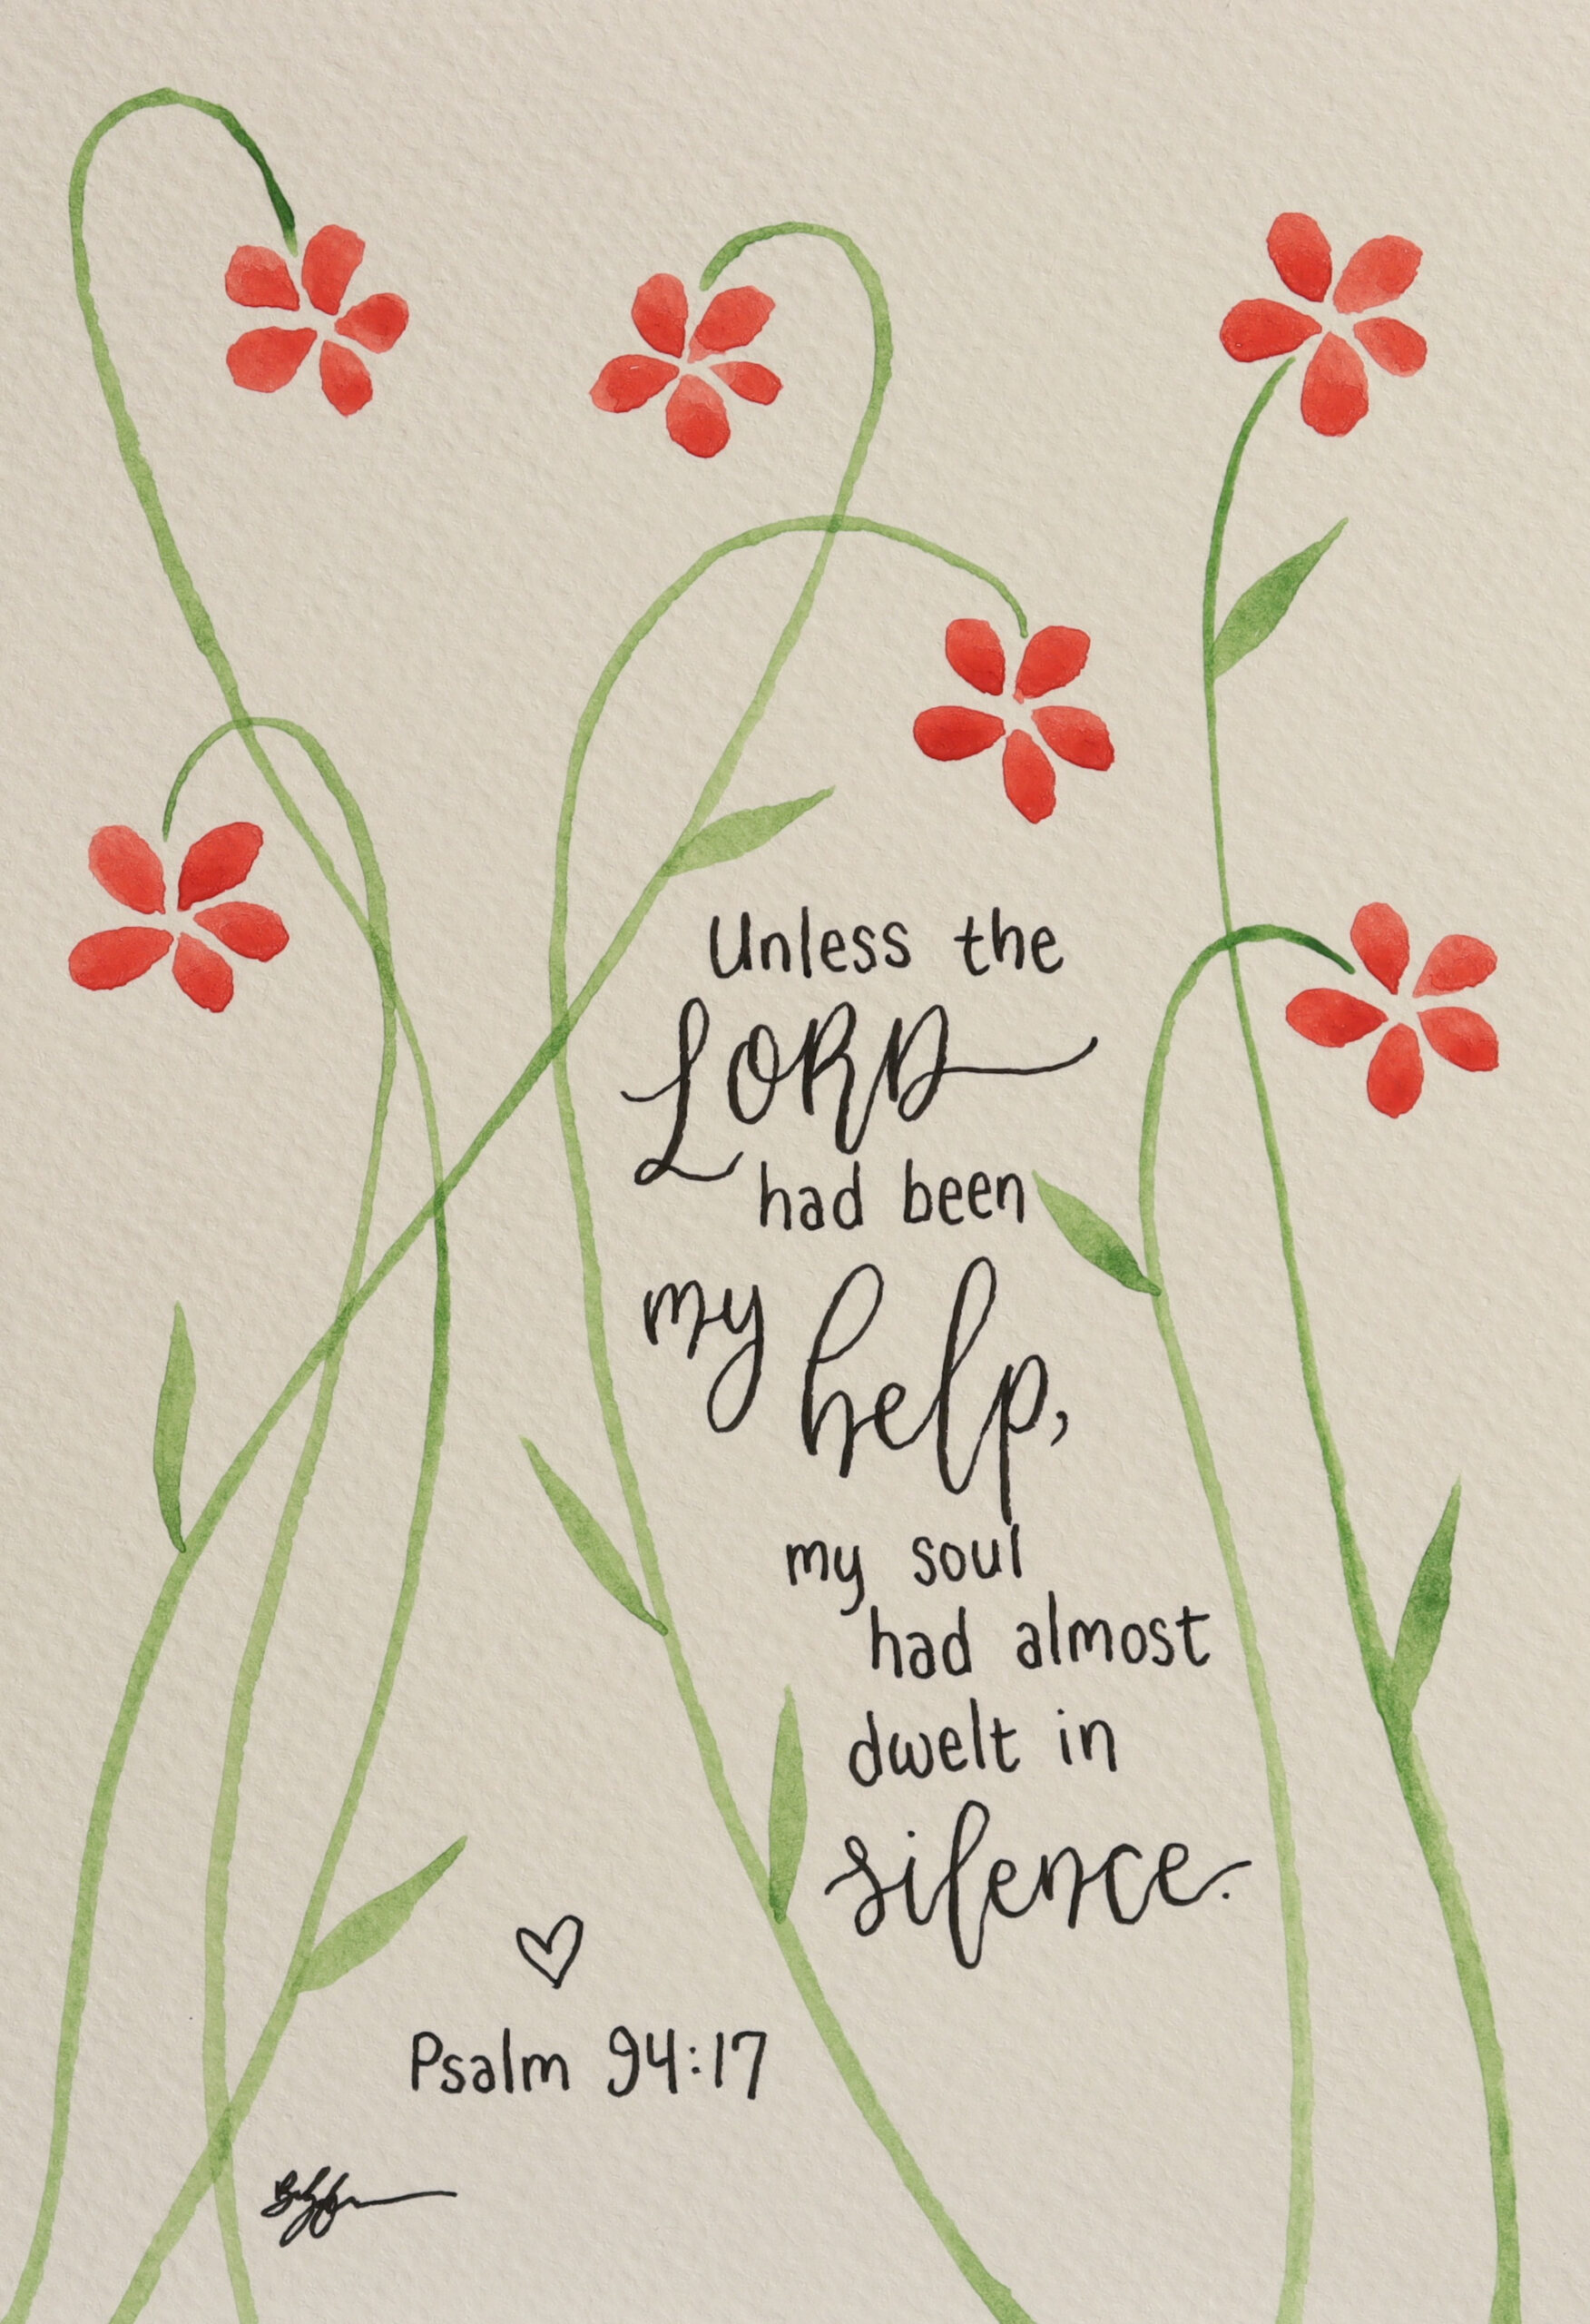 Unless the
LORD
had been
my help,
my soul
had almost
dwelt in
silence.
Psalm 94:17